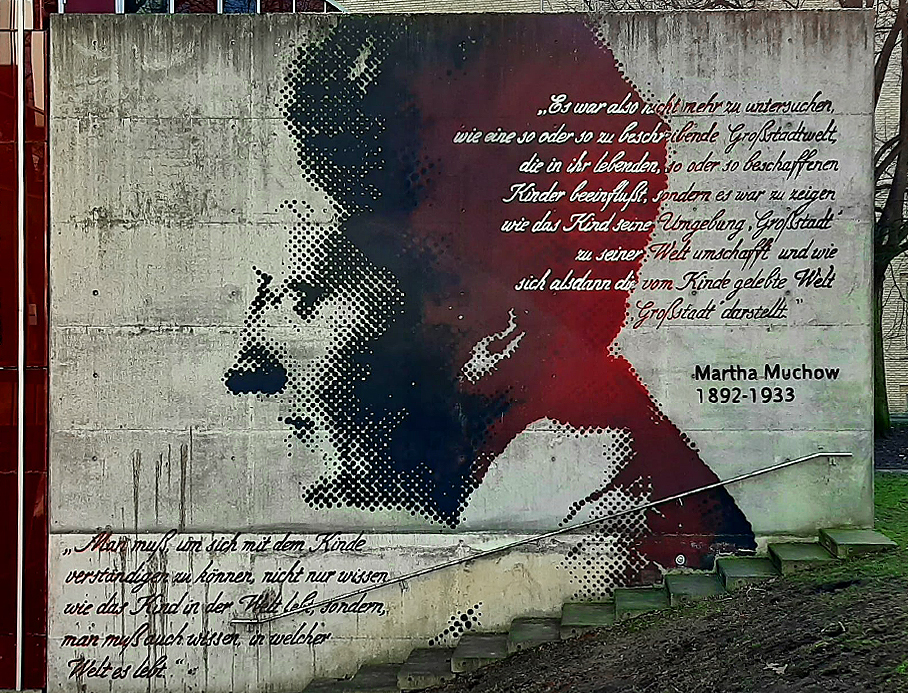 „Es war also nicht mehr zu untersuchen,
wie eine so oder so zu beschreibende Großstadtwelt,
die in ihr lebenden, so oder so beschaffenen
Kinder beeinflußt, sondern es war zu zeigen
wie das Kind seine Umgebung ‚Großstadt‘
zu seiner Welt umschafft und wie
sich alsdann die vom Kinde gelebte Welt
‚Großstadt‘ darstellt.“
Martha Muchow
1892-1933
„Man muß, um sich mit dem Kinde
verständigen zu können, nicht nur wissen
wie das Kind in der Welt lebt, sondern,
man muß auch wissen, in welcher
Welt es lebt.“